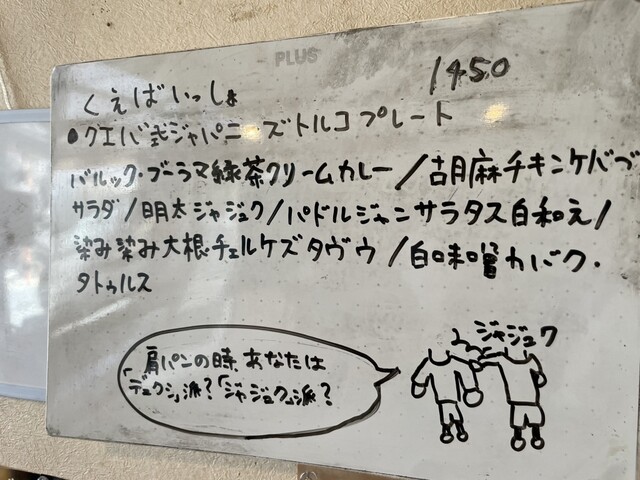 PLUS
1450
くえばいっしょ
●クエバ式ジャパニーズトルコプレート
バルック・ブーラマ緑茶クリームカレー/胡麻チキンケバブ
サラダ/明太ジャジュク/パドルジャンサラタス白和え/
染み染み大根チェルケズタヴウ/白味噌カバク・
タトゥルス
ジャジュク
肩パンの時、あなたは
「デュクシ」派?「ジャジュク」派?